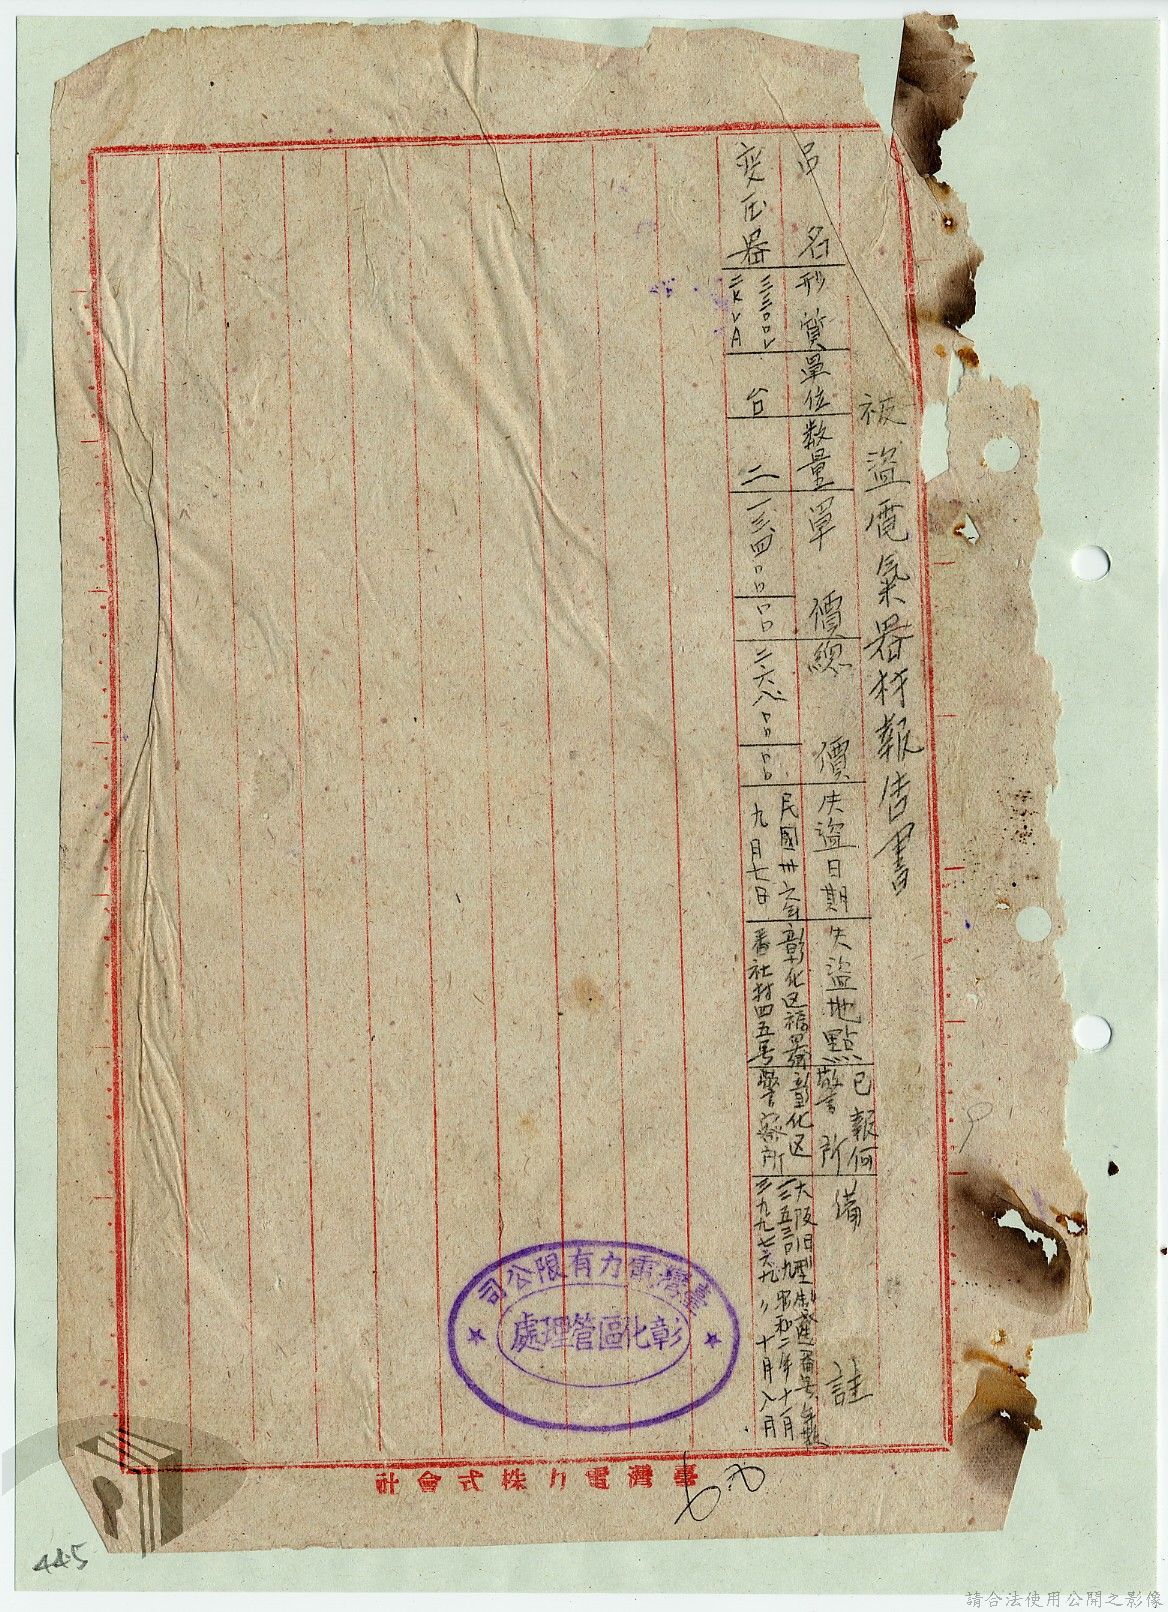 被盜電氣器材報告書
品名
形質
單位
数量
單價
總價
失盜日期
失盜地點
已報何
警所
備註
変圧器
三三〇〇V
二KVA
台
二
一三四〇〇
〇〇
二六八〇〇
〇〇
民國卅六年
九月七日
彰化区福興
番社村四五号
彰化区
警察所
大阪旧型製造番号年数
三五三〇九昭和二年十一月
三九九七六九〃十月八月
臺灣電力有限公司
彰化區管理處
臺灣電力株式會社
445
請合法使用公開之影像